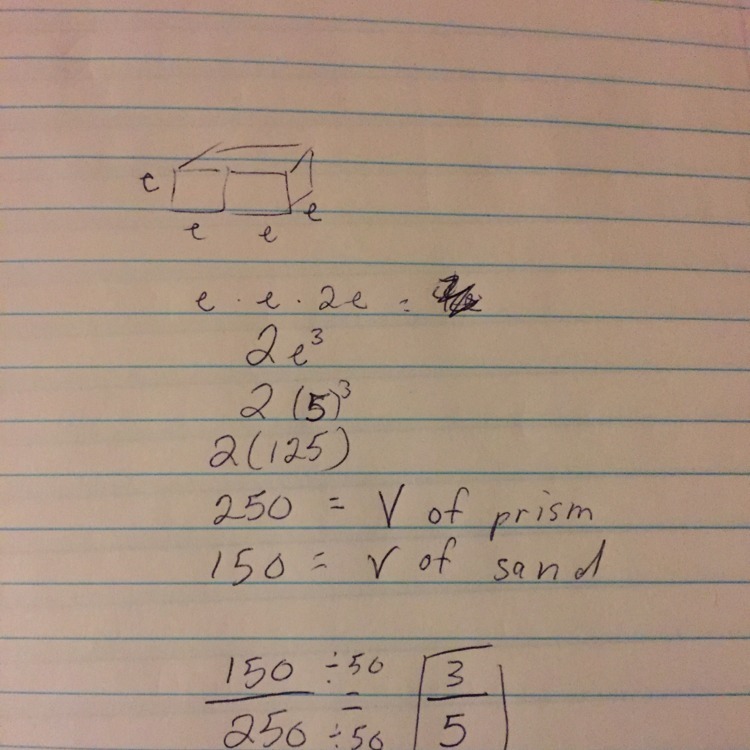 e
e e e
e · e · 2e =
2e³
2(5)³
2(125)
250 = V of prism
150 = V of sand
150 ÷50 = 3
250 ÷50 5